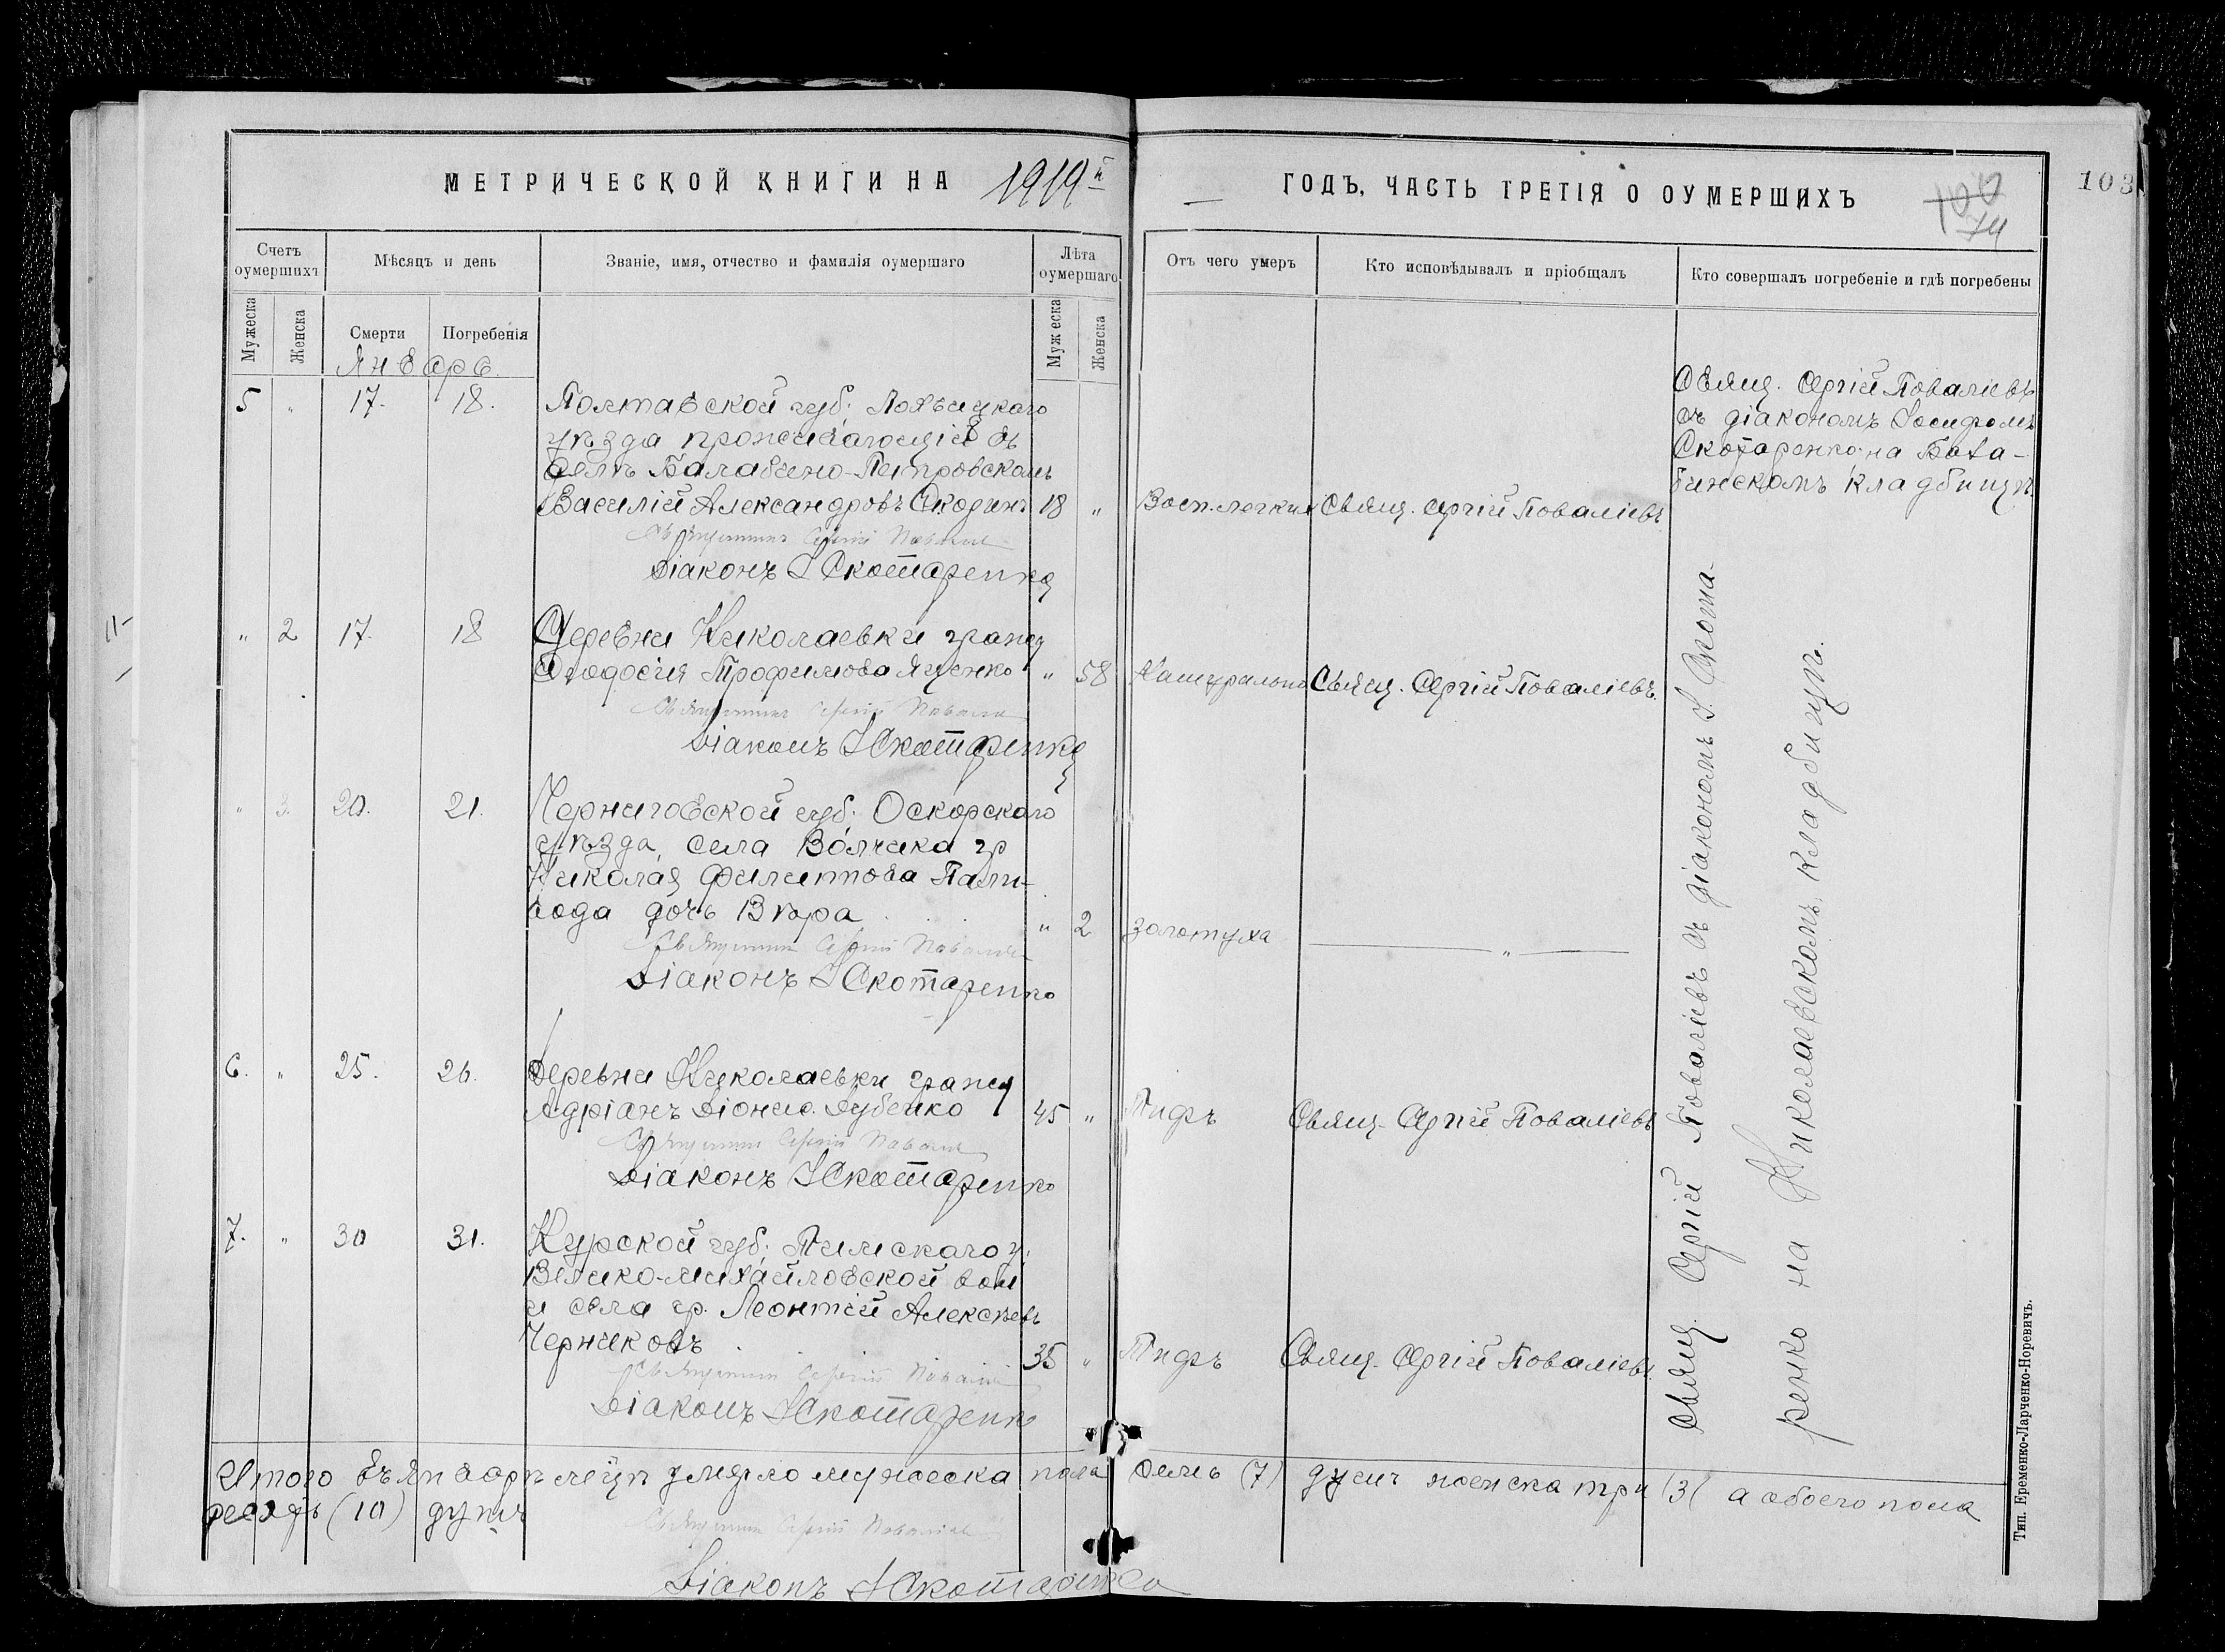 МЕТРИЧЕСКОЙ КНИГИ НА 1919й
ГОДЪ, ЧАСТЬ ТРЕТІЯ О ОУМЕРШИХЪ
100
74
103
Счетъ оумершихъ
Мѣсяцъ и день
Званіе, имя, отчество и фамилія оумершаго
Лѣта оумершаго
Отъ чего умеръ
Кто исповѣдывалъ и пріобщалъ
Кто совершалъ погребеніе и гдѣ погребены
Мужеска
Женска
Смерти
Погребенія
Мужеска
Женска
Январь.
5 " 17. 18. Полтавской губ. Лохвицкаго
уѣзда проживающій въ
селѣ Балабино-Петровскомъ
Василій Александровъ Скоринъ 18 " Восп. легкихъ Свящ. Сергій Поваліевъ
Священникъ Сергій Поваліевъ
Діаконъ І Скотаренко
Свящ. Сергій Поваліевъ
съ діакономъ Іосифомъ
Скотаренко на Бала-
бинскомъ кладбищѣ.
" 2 17. 18 Деревни Николаевки граж
Ѳеодосія Трофимова Яценко " 58 Натурально Свящ. Сергій Поваліевъ.
Священникъ Сергій Поваліевъ
Діаконъ І Скотаренко
" 3. 20. 21. Черниговской губ. Оскорскаго
уѣзда, села Волчика гр
Николая Филиппова Пали-
вода дочь Вѣра " 2 золотуха "
Священникъ Сергій Поваліевъ
Діаконъ І Скотаренко
6. " 25. 26. Деревни Николаевки граж
Адріанъ Діонис. Дубенко 45 " Тифъ Свящ. Сергій Поваліевъ
Священникъ Сергій Поваліевъ
Діаконъ І Скотаренко
7. " 30 31. Курской губ. Тимскаго у.
Велико-михайловской вол
и села гр. Леонтій Алексѣевъ
Черниковъ 35 " Тифъ Свящ. Сергій Поваліевъ.
Священникъ Сергій Поваліевъ
Діаконъ І Скотаренко
Свящ. Сергій Поваліевъ съ діакономъ І. Скота-
ренко на Николаевскомъ кладбищѣ.
Итого въ январѣ м-цѣ умерло мужеска пола семь (7) душъ женска три (3) а обоего пола
десять (10) душъ
Священникъ Сергій Поваліевъ
Діаконъ І Скотаренко
Тип. Еременко-Ларченко-Норевичъ.